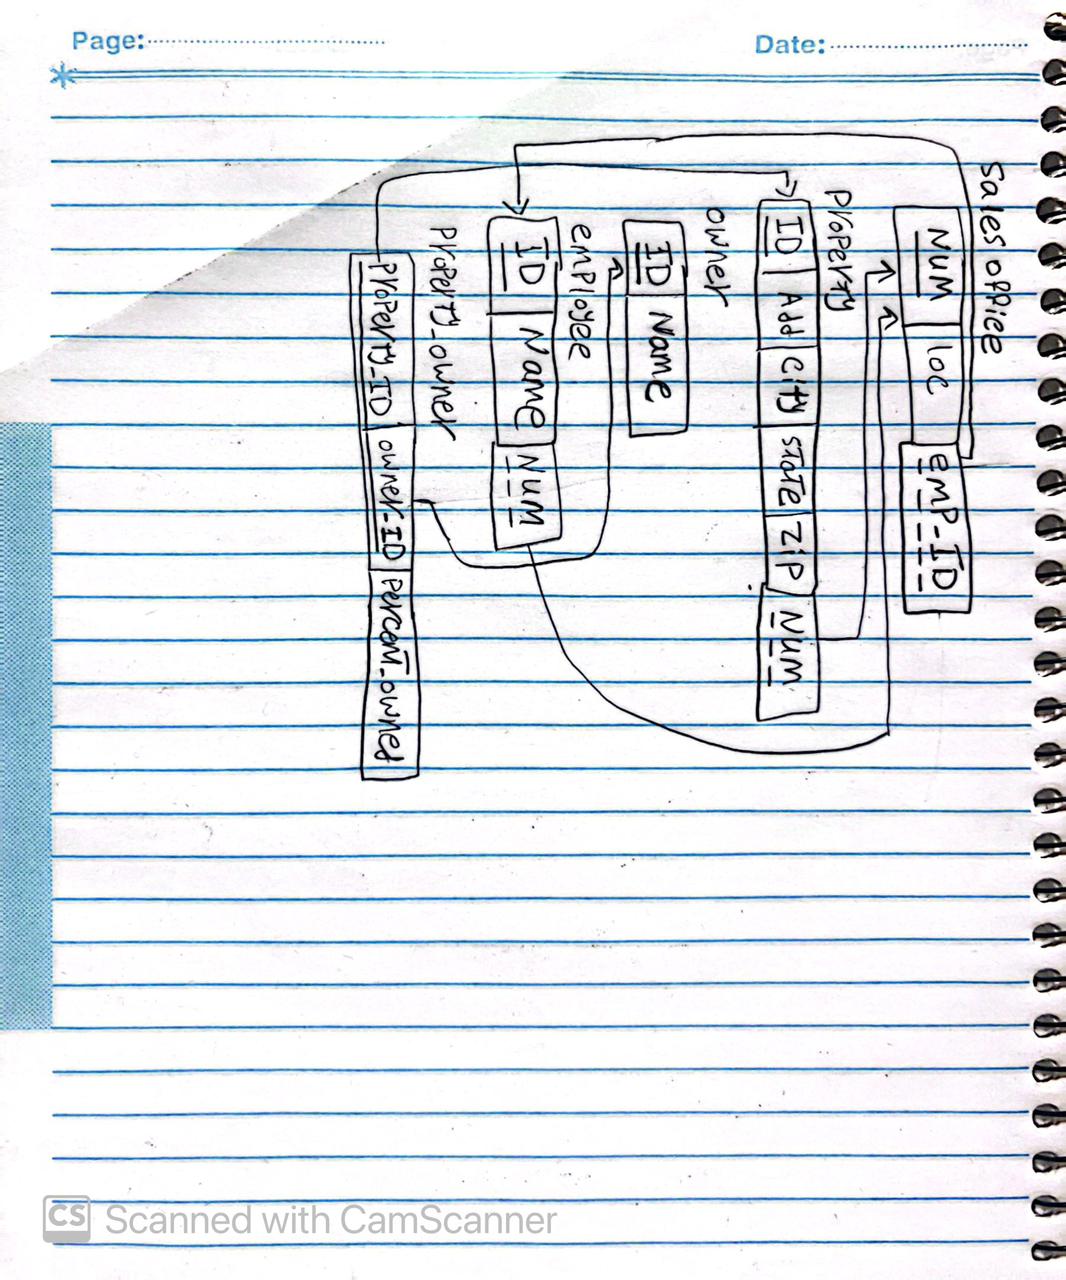 Page:
Date:
Sales office
Num loc emp-ID
Property
ID Add city state zip Num
owner
ID Name
employee
ID Name Num
Property_owner
Property_ID owner-ID Percent-owned
CS Scanned with CamScanner